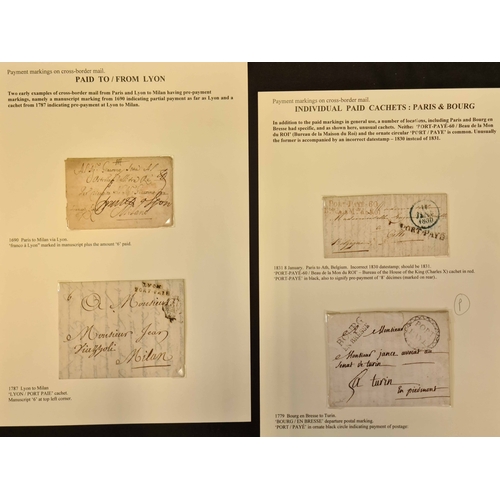 Payment markings on cross-border mail.
PAID TO / FROM LYON
Two early examples of cross-border mail from Paris and Lyon to Milan having pre-payment
markings, namely a manuscript marking from 1690 indicating partial payment as far as Lyon and a
cachet from 1787 indicating pre-payment at Lyon to Milan.
1690 Paris to Milan via Lyon.
'franco à Lyon' marked in manuscript plus the amount '6' paid.
LYON
PORT PAYE
6 A Monsieur
Monsieur Jean
Milan
1787 Lyon to Milan
'LYON / PORT PAIE' cachet.
Manuscript '6' at top left corner.
Payment markings on cross-border mail.
INDIVIDUAL PAID CACHETS : PARIS & BOURG
In addition to the paid markings in general use, a number of locations, including Paris and Bourg en
Bresse had specific, and as shown here, unusual cachets. Neither 'PORT-PAYÉ-60 / Beau de la Mon
du ROI' (Bureau de la Maison du Roi) and the ornate circular 'PORT / PAYÉ' is common. Unusually
the former is accompanied by an incorrect datestamp – 1830 instead of 1831.
PORT-PAYÉ-60
JANV
1830
PORT-PAYÉ
1831 8 January. Paris to Ath, Belgium. Incorrect 1830 datestamp, should be 1831.
'PORT-PAYÉ-60 / Beau de la Mon du ROI' – Bureau of the House of the King (Charles X) cachet in red.
'PORT-PAYÉ' in black, also to signify pre-payment of '8' décimes (marked on rear).
BOURG
EN BRESSE
PORT
A Monsieur
Monsieur jance avocat au
Senat de turin
A turin
En piedmont
1779 Bourg en Bresse to Turin.
'BOURG / EN BRESSE' departure postal marking.
'PORT / PAYÉ' in ornate black circle indicating payment of postage.